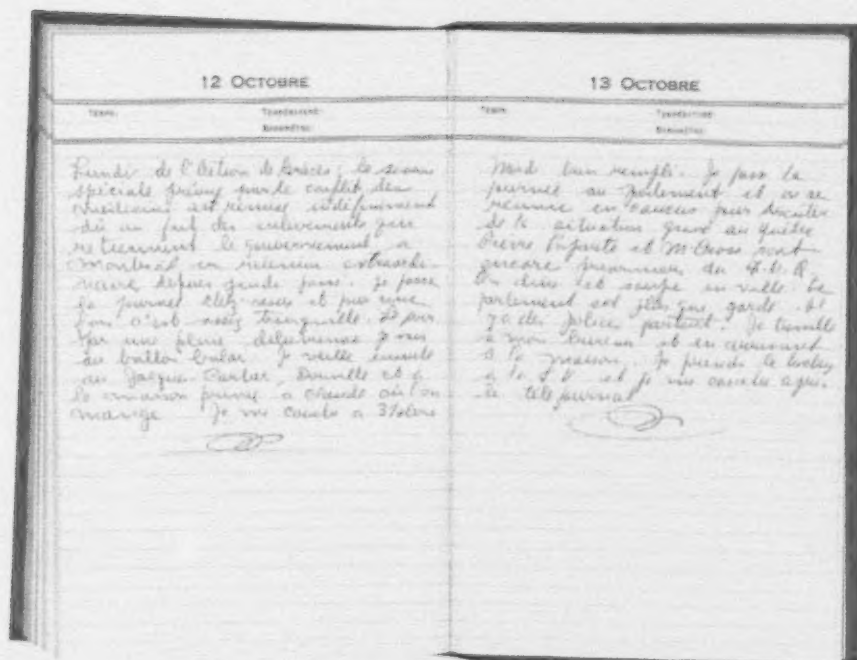 12 OCTOBRE
TEMPS: TEMPÉRATURE:
BAROMÈTRE:
Lundi de l'Action de Grâces; la séance
spéciale prévue pour le conflit des
médecins est remise indéfiniment
dû au fait des enlèvements qui
retiennent le gouvernement à
Montréal en réunion extraordi-
naire depuis jours. Je passe
la journée chez-nous et pour une
fois c'est assez tranquille. Le soir
par une pluie je vais
au ballon balai. Je veille ensuite
au Jacques-Cartier, et à
la maison privée à Claude où l'on
mange. Je me couche à 3½ hres
13 OCTOBRE
TEMPS: TEMPÉRATURE:
BAROMÈTRE:
bien rempli. Je passe la
journée au parlement et on se
réunit en caucus pour discuter
de la situation grave au Québec
Pierre Laporte et M. Cross sont
encore prisonniers du F.L.Q.
On dîne et soupe en ville. Le
parlement est plus que gardé. Il
y a des polices partout. Je travaille
à mon bureau et en
à la maison. Je prends le hockey
à la T.V. et je me couche après
le téléjournal